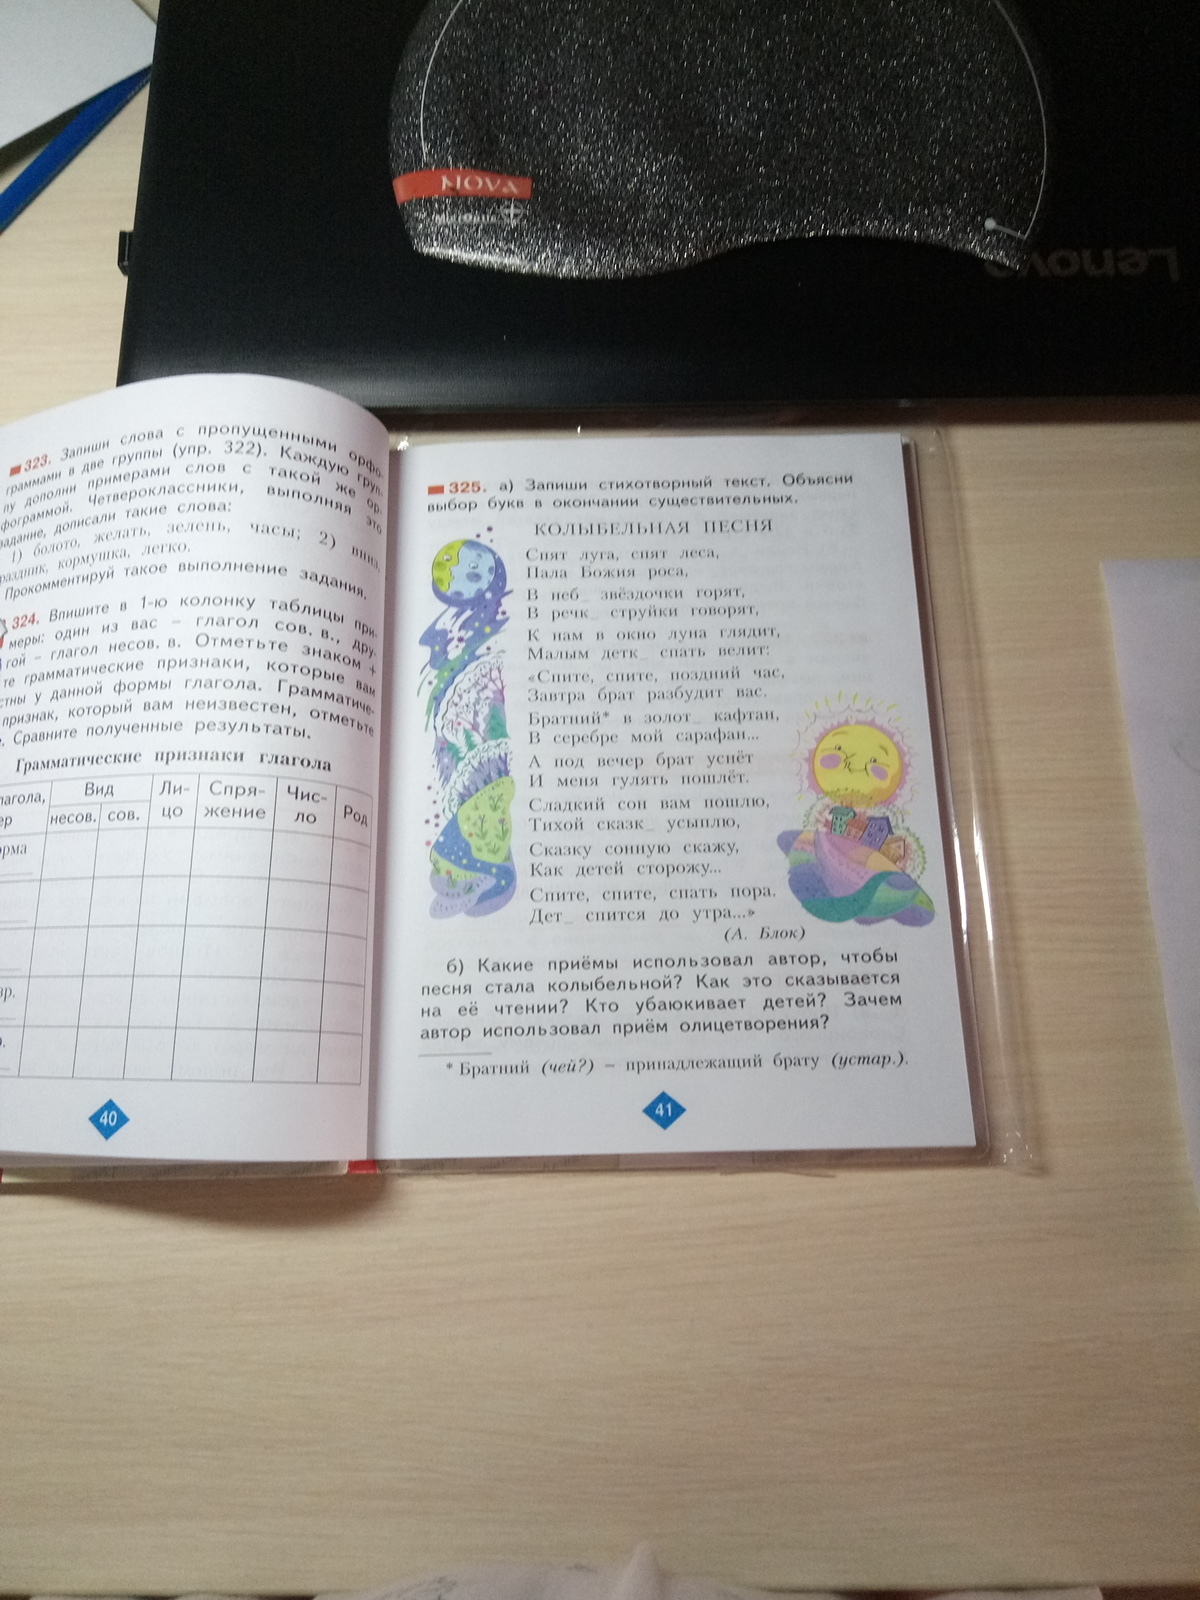 NOVA
Lenovo
323. Запиши слова с пропущенными орфо-
граммами в две группы (упр. 322). Каждую груп-
пу дополни примерами слов с такой же ор-
фограммой. Четвероклассники, выполняя это
задание, дописали такие слова:
1) болото, желать, зелень, часы; 2) вниз,
праздник, кормушка, легко.
Прокомментируй такое выполнение задания.
324. Впишите в 1-ю колонку таблицы при-
меры: один из вас – глагол сов. в., дру-
гой – глагол несов. в. Отметьте знаком +
те грамматические признаки, которые вам
стны у данной формы глагола. Грамматиче-
признак, который вам неизвестен, отметьте
Сравните полученные результаты.
Грамматические признаки глагола
лагола,
ер
Вид
несов.
сов.
Ли-
цо
Спря-
жение
Чис-
ло
Род
орма
40
325. а) Запиши стихотворный текст. Объясни
выбор букв в окончании существительных.
КОЛЫБЕЛЬНАЯ ПЕСНЯ
Спят луга, спят леса,
Пала Божия роса,
В неб_ звёздочки горят,
В речк_ струйки говорят,
К нам в окно луна глядит,
Малым детк_ спать велит:
«Спите, спите, поздний час,
Завтра брат разбудит вас.
Братний* в золот_ кафтан,
В серебре мой сарафан...
А под вечер брат уснёт
И меня гулять пошлёт.
Сладкий сон вам пошлю,
Тихой сказк_ усыплю,
Сказку сонную скажу,
Как детей сторожу...
Спите, спите, спать пора.
Дет_ спится до утра...»
(А. Блок)
б) Какие приёмы использовал автор, чтобы
песня стала колыбельной? Как это сказывается
на её чтении? Кто убаюкивает детей? Зачем
автор использовал приём олицетворения?
* Братний (чей?) – принадлежащий брату (устар.).
41